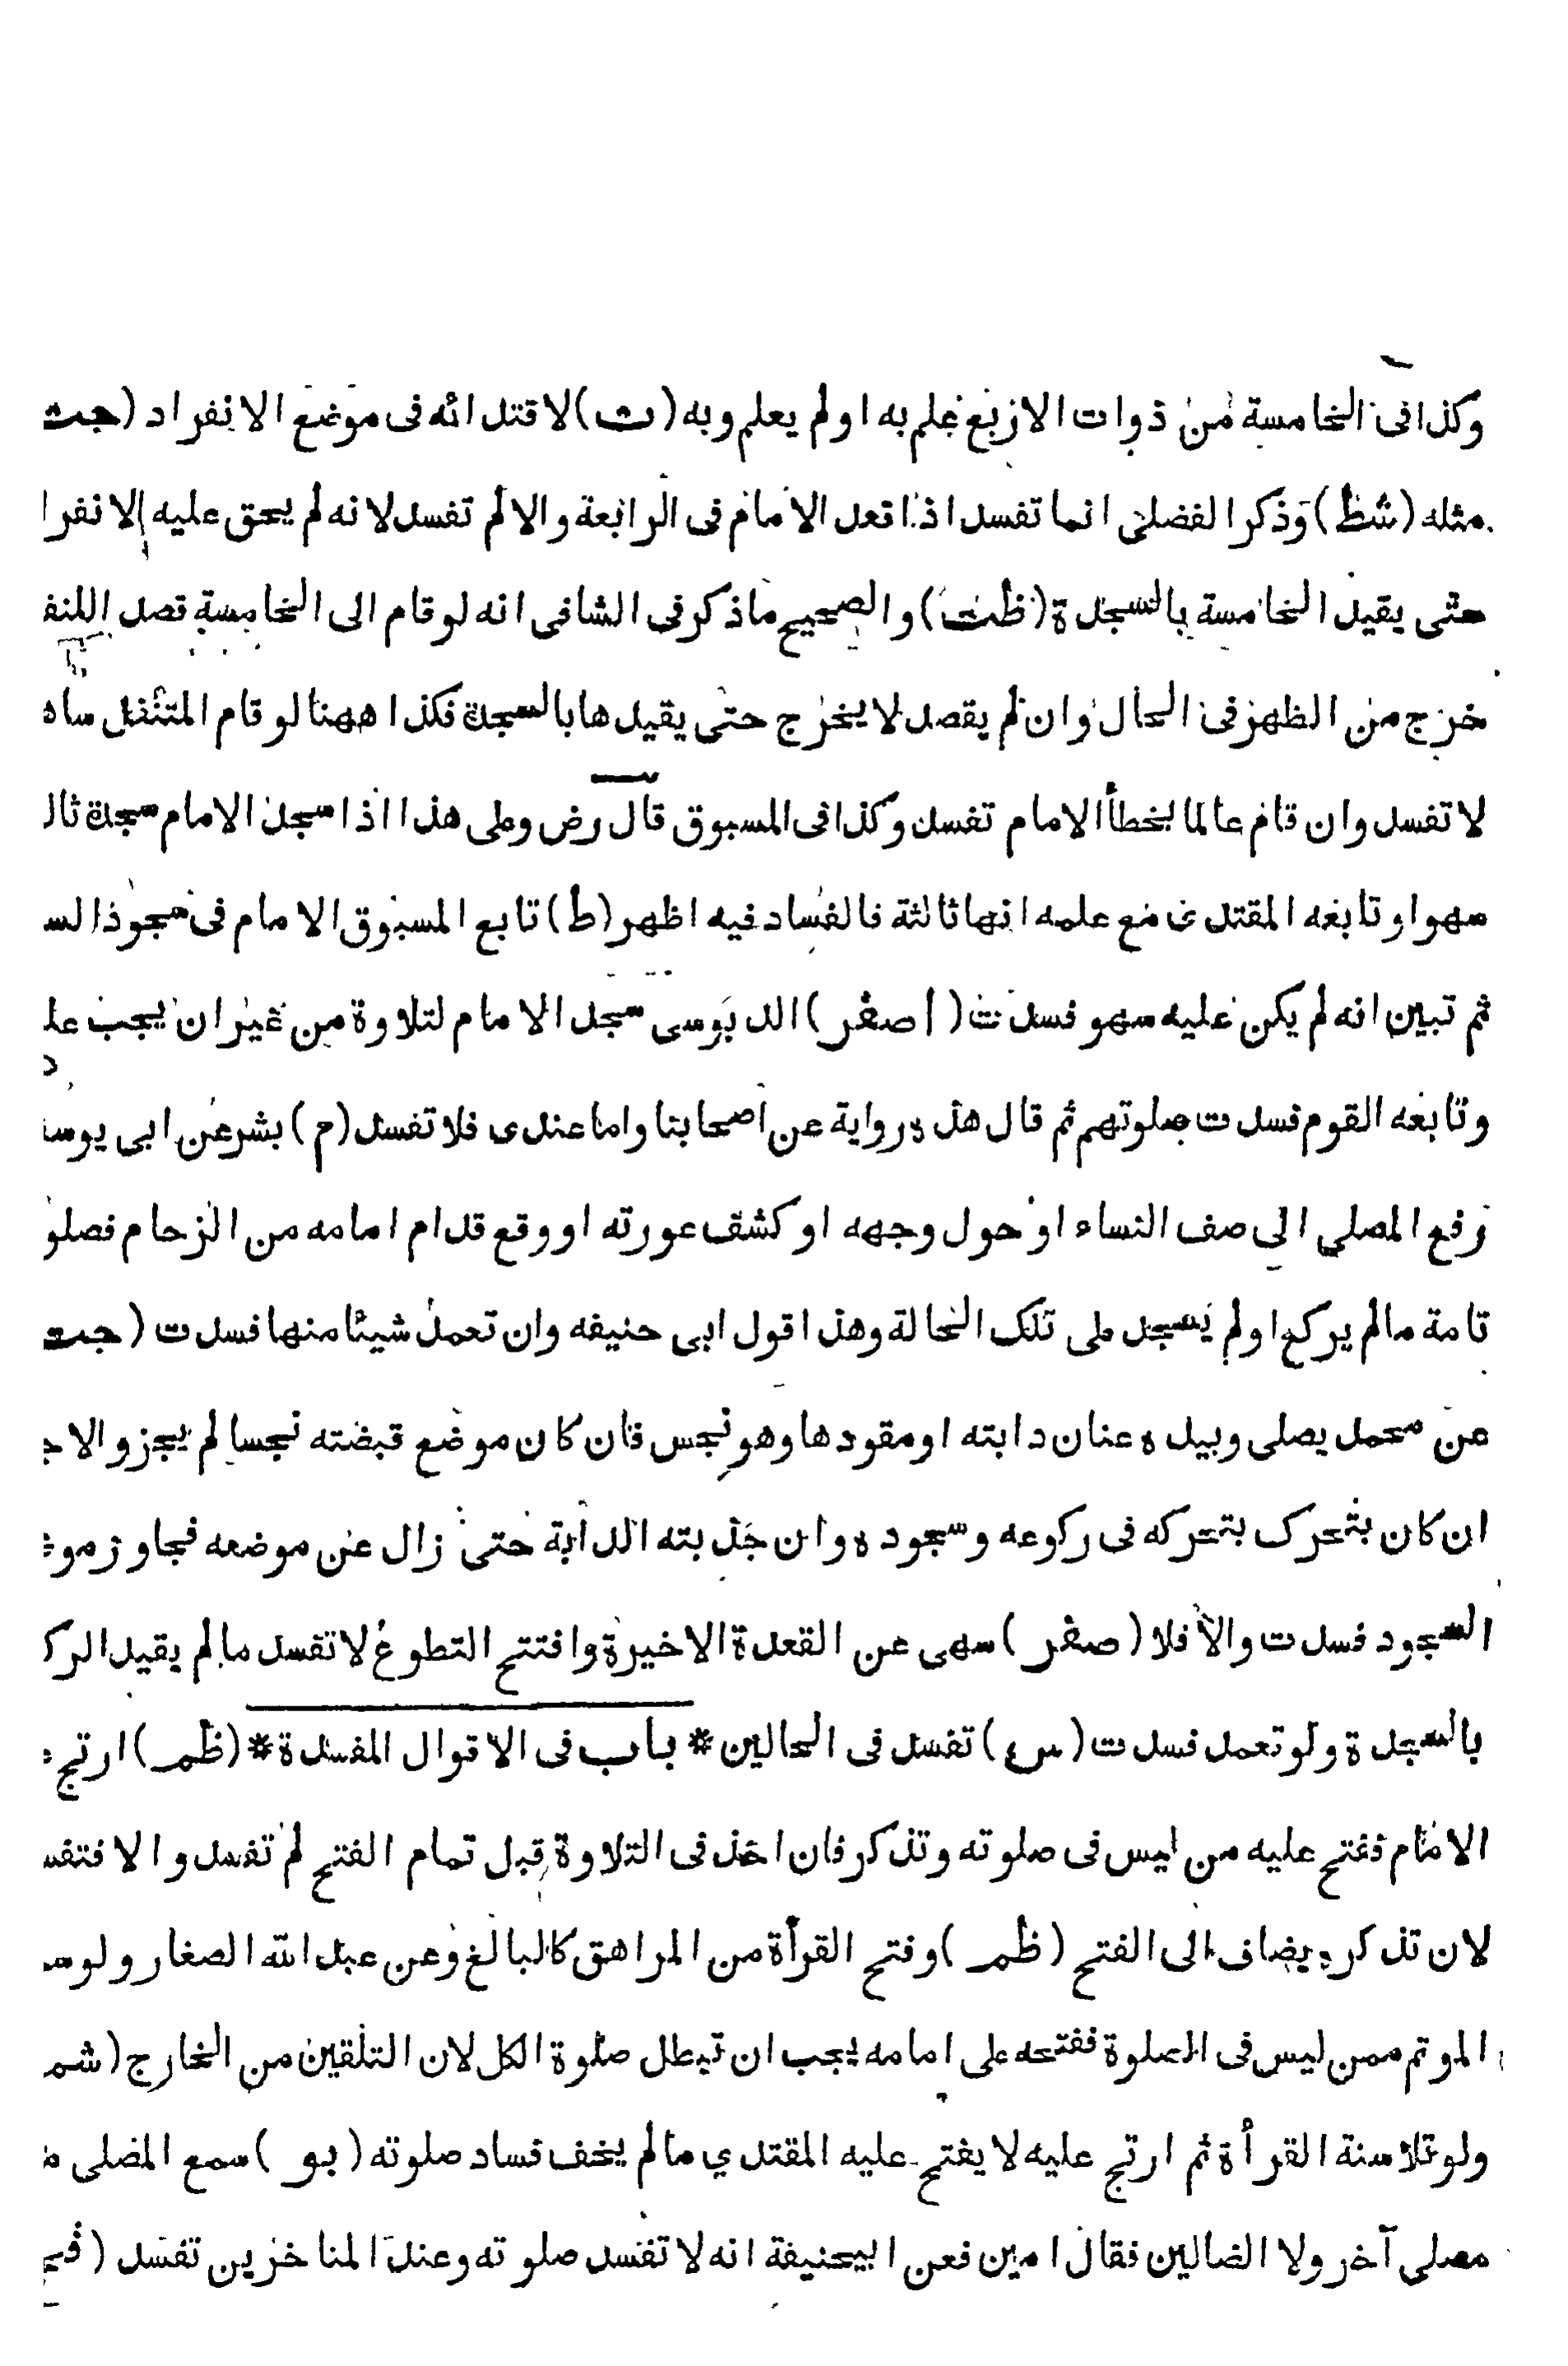 وكذا فى الخامسة من ذوات الاربع علم به او لم يعلم وبه (ت) لاقتدائه فى موضع الانفراد (جت
مثله (شظ) وذكر الفضلى انما تفسد اذا قعد الامام فى الرابعة والا لم تفسد لانه لم يحق عليه الانفرا
حتى يقيد الخامسة بالسجدة (ظت) والصحيح ماذكر فى الشافى انه لو قام الى الخامسة قصد اللتنف
خرج من الظهر فى الحال وان لم يقصد لا يخرج حتى يقيدها بالسجدة فكذا ههنا لو قام المتنفل ساه
لا تفسد وان قام عالما بخطأ الامام تفسد وكذا فى المسبوق قال رض وعلى هذا اذا سجد الامام سجدة ثال
سهوا وتابعه المقتدى مع علمه انها ثالثة فالفساد فيه اظهر (ط) تابع المسبوق الامام فى سجود الس
ثم تبين انه لم يكن عليه سهو فسدت (اصغر) الدبوسى سجد الامام لتلاوة من غير ان يجب عل
وتابعه القوم فسدت صلوتهم ثم قال هذه رواية عن اصحابنا واما عندى فلا تفسد (م) بشر عن ابى يوس
رفع المصلى الى صف النساء او حول وجهه او كشف عورته او وقع قدام امامه من الزحام فصلو
تامة مالم يركع او لم يسجد على تلك الحالة وهذا قول ابى حنيفه وان تعمد شيئا منها فسدت (جت
عن محمد يصلى وبيده عنان دابته او مقودها وهو نجس فان كان موضع قبضته نجسا لم يجز والا ج
ان كان يتحرك بتحركه فى ركوعه وسجوده وان جذبته الدابة حتى زال عن موضعه فجاوز موض
السجود فسدت والا فلا (صغر) سهى عن القعدة الاخيرة وافتتح التطوع لا تفسد مالم يقيد الرك
بالسجدة ولو تعمد فسدت (سع) تفسد فى الحالين * باب فى الاقوال المفسدة * (ظمر) ارتج ع
الامام ففتح عليه من ليس فى صلوته وتذكر فان اخذ فى التلاوة قبل تمام الفتح لم تفسد والا فتفس
لان تذكره يضاف الى الفتح (ظمر) وفتح القرأة من المراهق كالبالغ وعن عبد الله الصفار ولو سم
الموتم ممن ليس فى الصلوة ففتحه على امامه يجب ان تبطل صلوة الكل لان التلقين من الخارج (شم
ولو تلا سنة القرأة ثم ارتج عليه لا يفتح عليه المقتدي مالم يخف فساد صلوته (بو) سمع المصلى م
مصلى آخر ولا الضالين فقال امين فعن ابيحنيفة انه لا تفسد صلوته وعند المتاخرين تفسد (فج